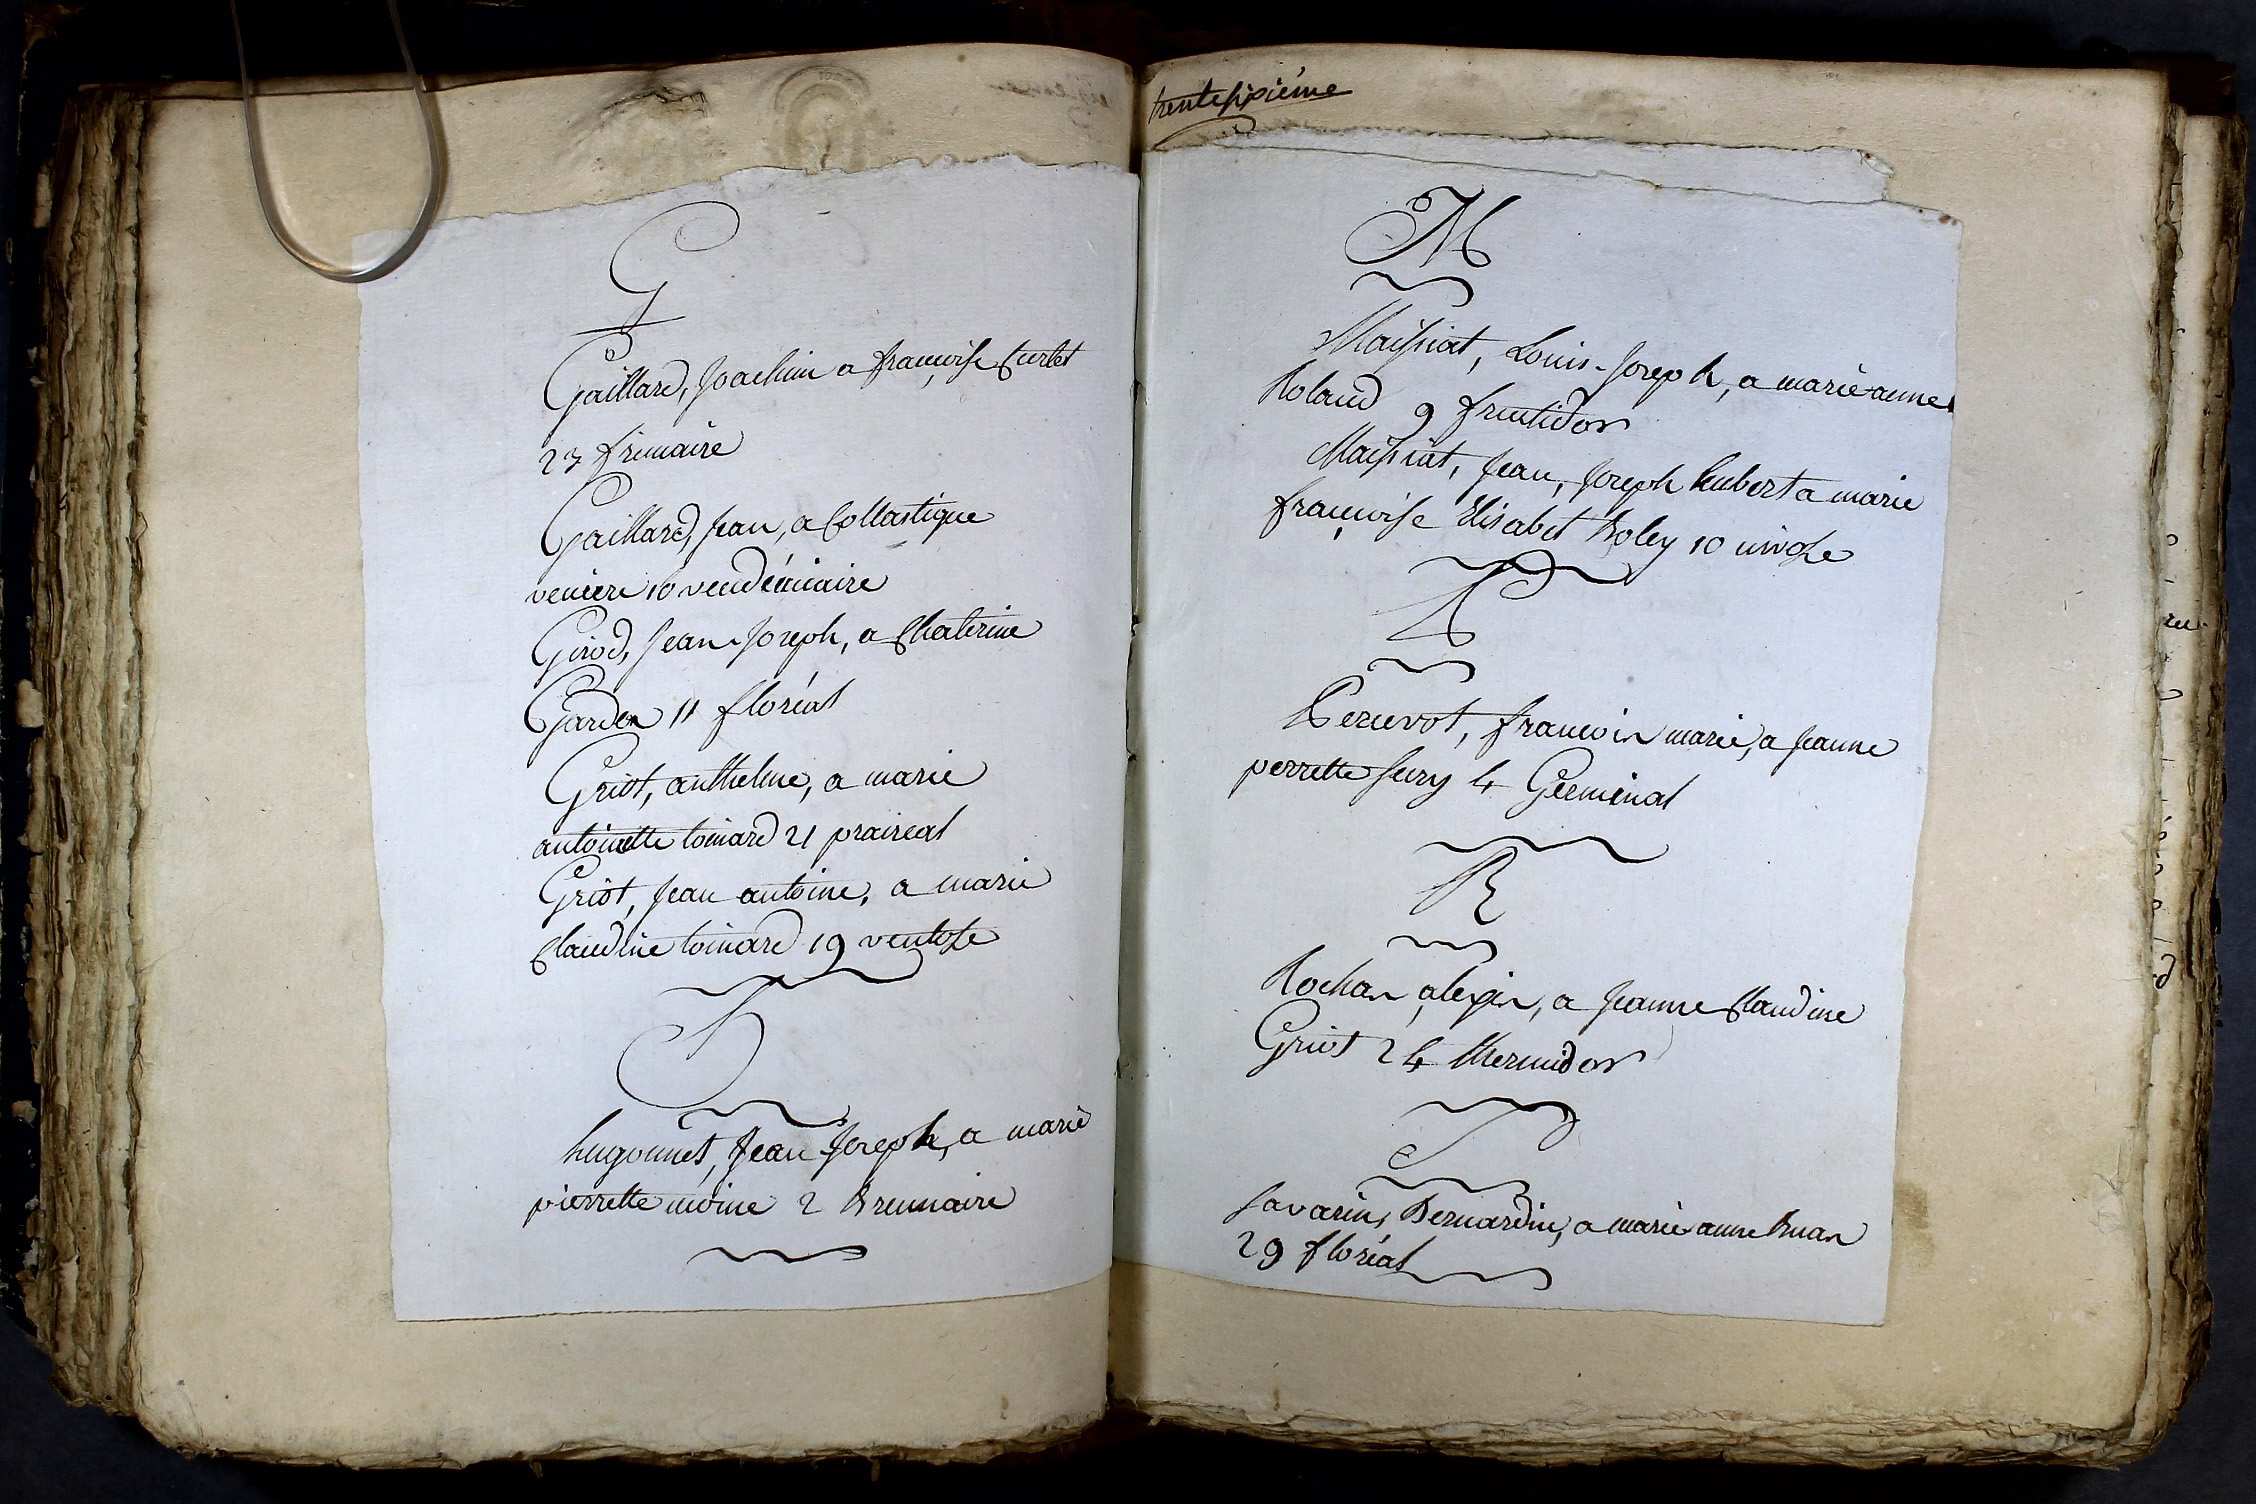 G
Gaillard, Joachim a françoise Curlet
23 frimaire
Gaillard, Jean, a Collastique
veniere 10 vendémiaire
Girod, Jean-Joseph, a Chaterine
Garden 11 floréal
Griot, anthelme, a marie
antoinette toinard 21 praireal
Griot, Jean antoine, a marie
Claudine toinard 19 ventose
h
hugonnet, Jean Joseph, a marie
pierrette moine 2 Brumaire
trentesixiéme
M
Maissiat, Louis-Joseph, a marie anne
Roland 9 fructidor
Maissiat, Jean, Joseph hubert a marie
françoise Elisabet Boley 10 nivose
P
Peruvot, francois marie, a Jeanne
perrette Jury 4 Gérminal
R
Rochan alexin, a Jeanne Claudine
Griot 24 thermidor
S
Savarin, Bernardin, a marie anne Bruan
29 floréal